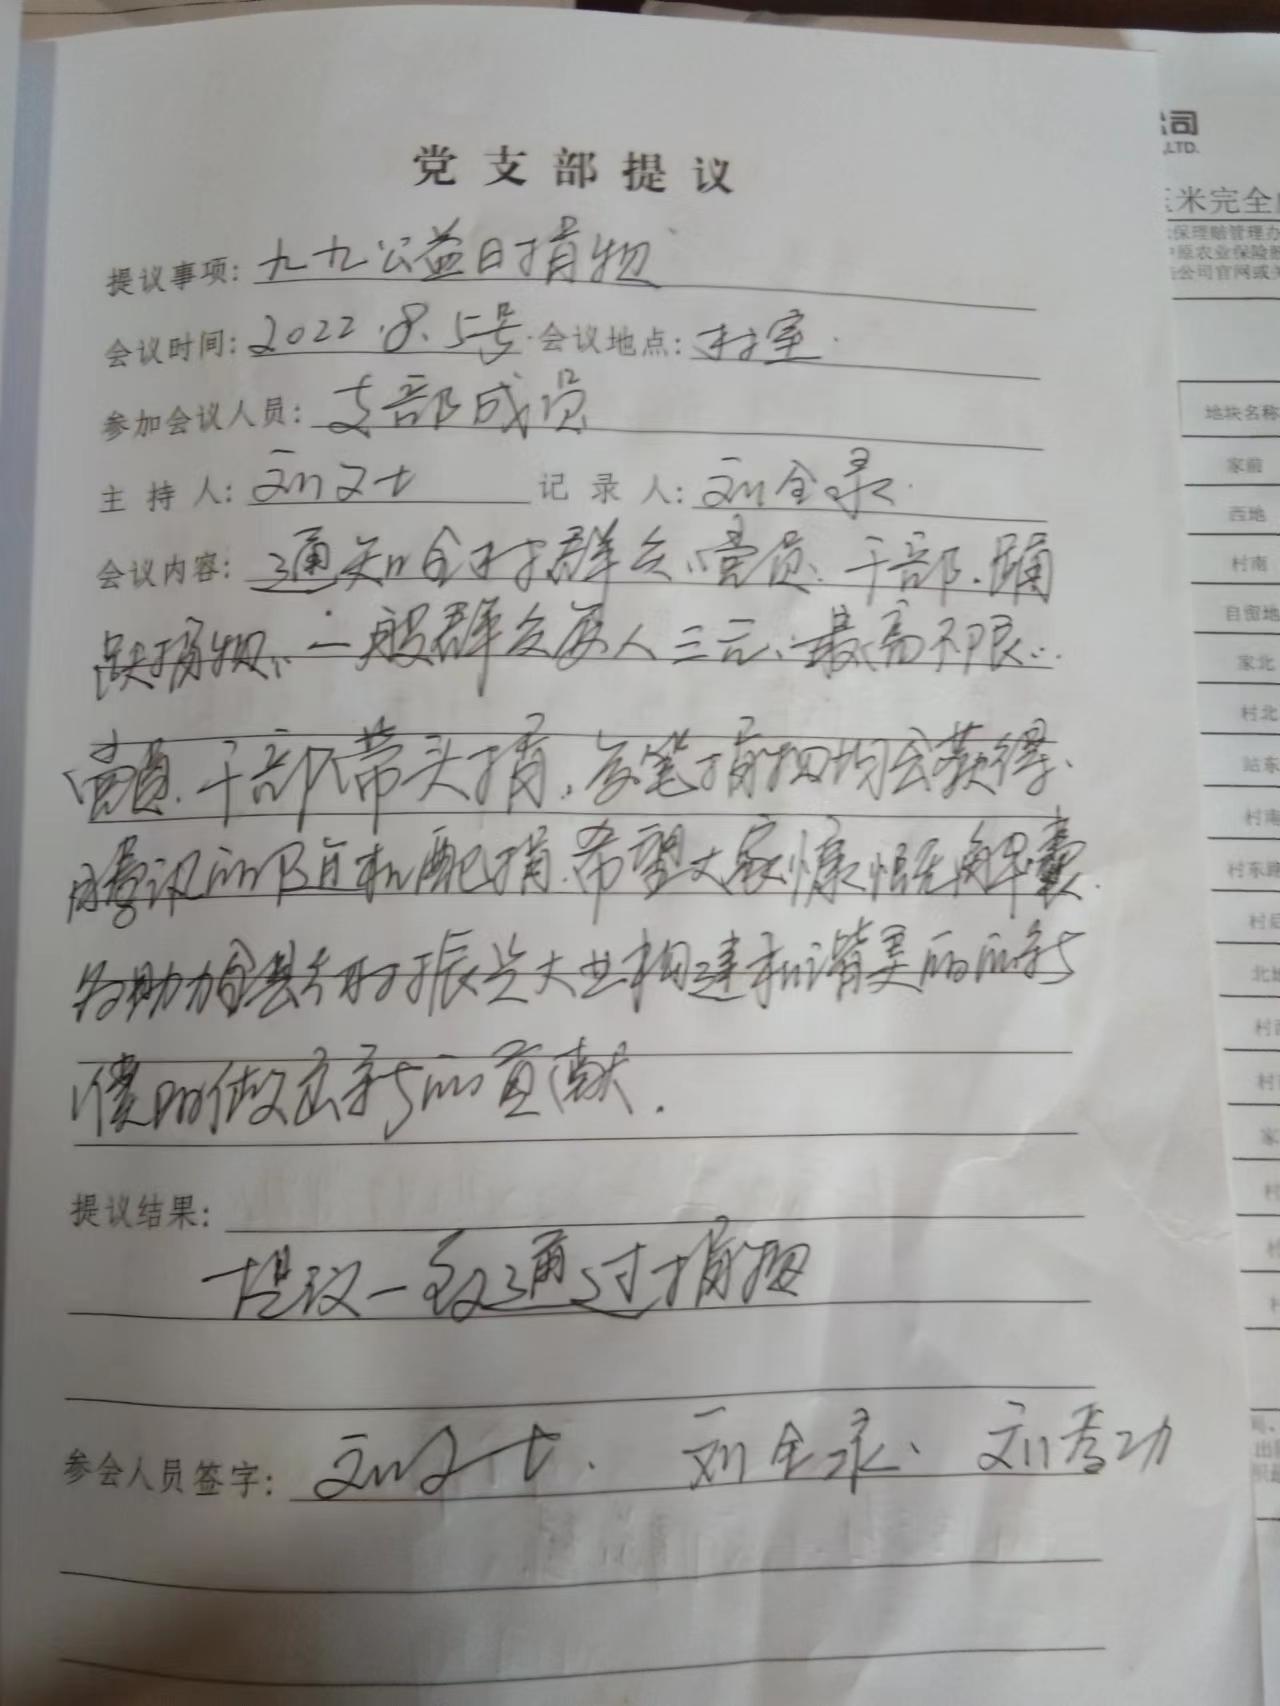 党支部提议
提议事项：九九公益日捐物
会议时间：2022.8.5号 会议地点：村室
参加会议人员：支部成员
主持人：刘文七 记录人：刘全录
会议内容：通知全村群众、党员、干部、踊
跃捐物、一般群众每人三元、最高不限
党员、干部带头捐，每笔捐物均会获得
腾讯的随机配捐、希望大家慷慨解囊
为助力全县乡村振兴大业构建和谐美丽的新
做出新的贡献.
提议结果：
提议一致通过捐物
参会人员签字：刘文七、刘全录、刘孝功
公司
LTD.
玉米完全
保理赔管理办
中原农业保险股
公司官网或
地块名称
家前
西地
村南
自留地
家北
村北
站东
村南
村东路
村后
北地